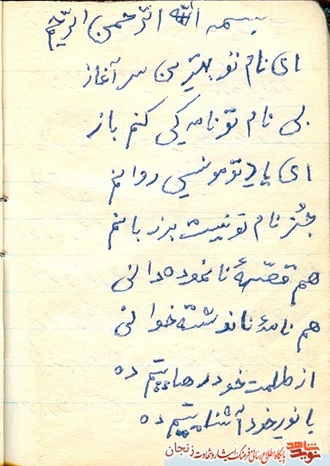 بسمه الله الرّحمن الرّحیم
ای نام تو بهترین سر آغاز
بی نام تو نامه کی کنم باز
ای یاد تو مونس روانم
جُز نام تو نیست بر زبانم
هم قصّهٔ نانموده دانی
هم نامهٔ نانوشته خوانی
از ظلمت خود رهائیم ده
با نور خود آشنائیم ده
نوید شاهد
پایگاه اطلاع رسانی فرهنگ ایثار و شهادت زنجان